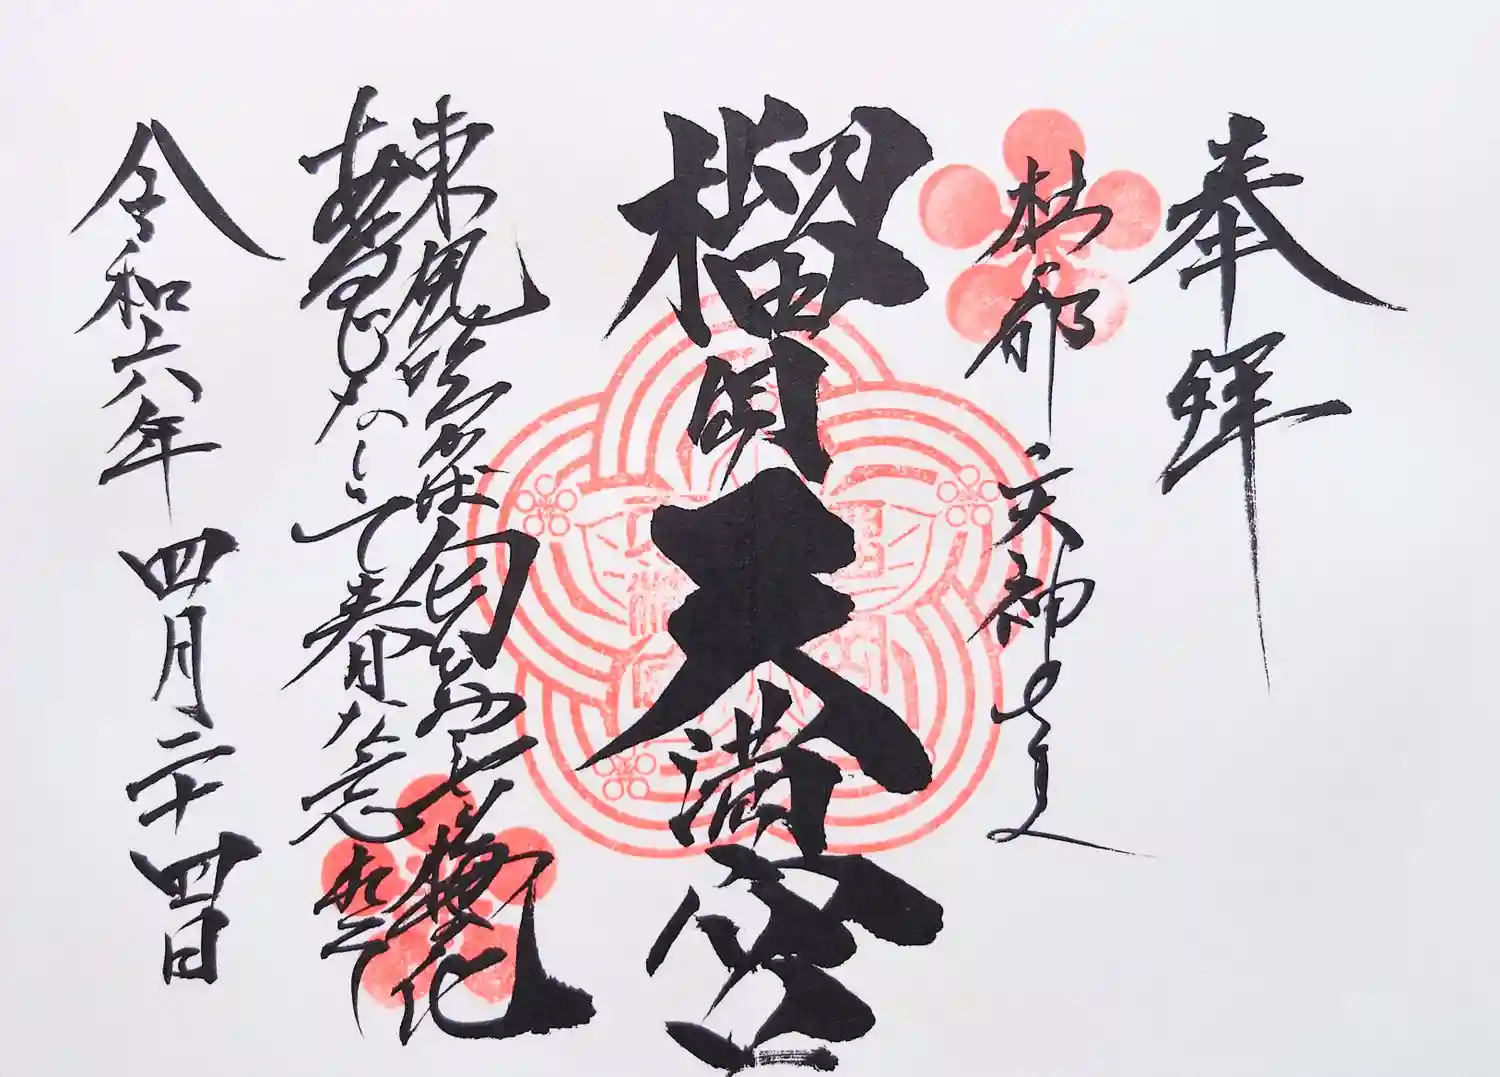 奉拝
杜乃都 天神さま
榴岡天満宮
東風吹かば匂ひおこせよ梅花
あるじなしとて春な忘れそ
令和六年 四月二十四日